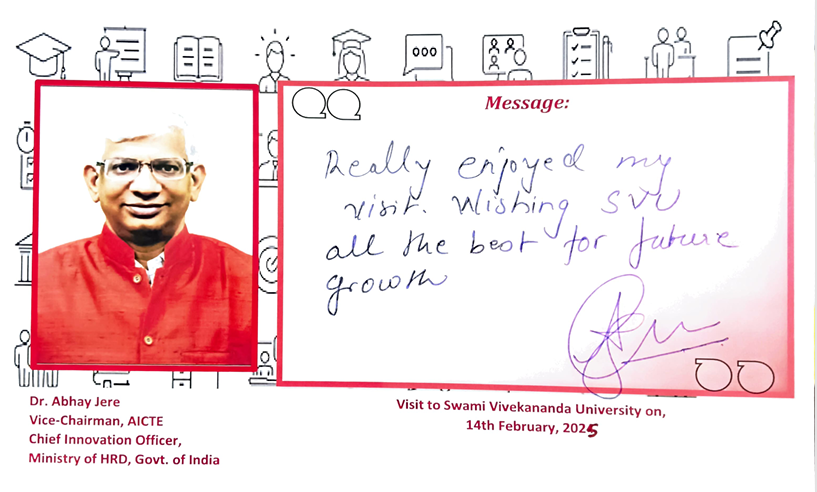 Message:
Really enjoyed my
visit. Wishing SVU
all the best for future
growth
Dr. Abhay Jere
Vice-Chairman, AICTE
Chief Innovation Officer,
Ministry of HRD, Govt. of India
Visit to Swami Vivekananda University on,
14th February, 2025